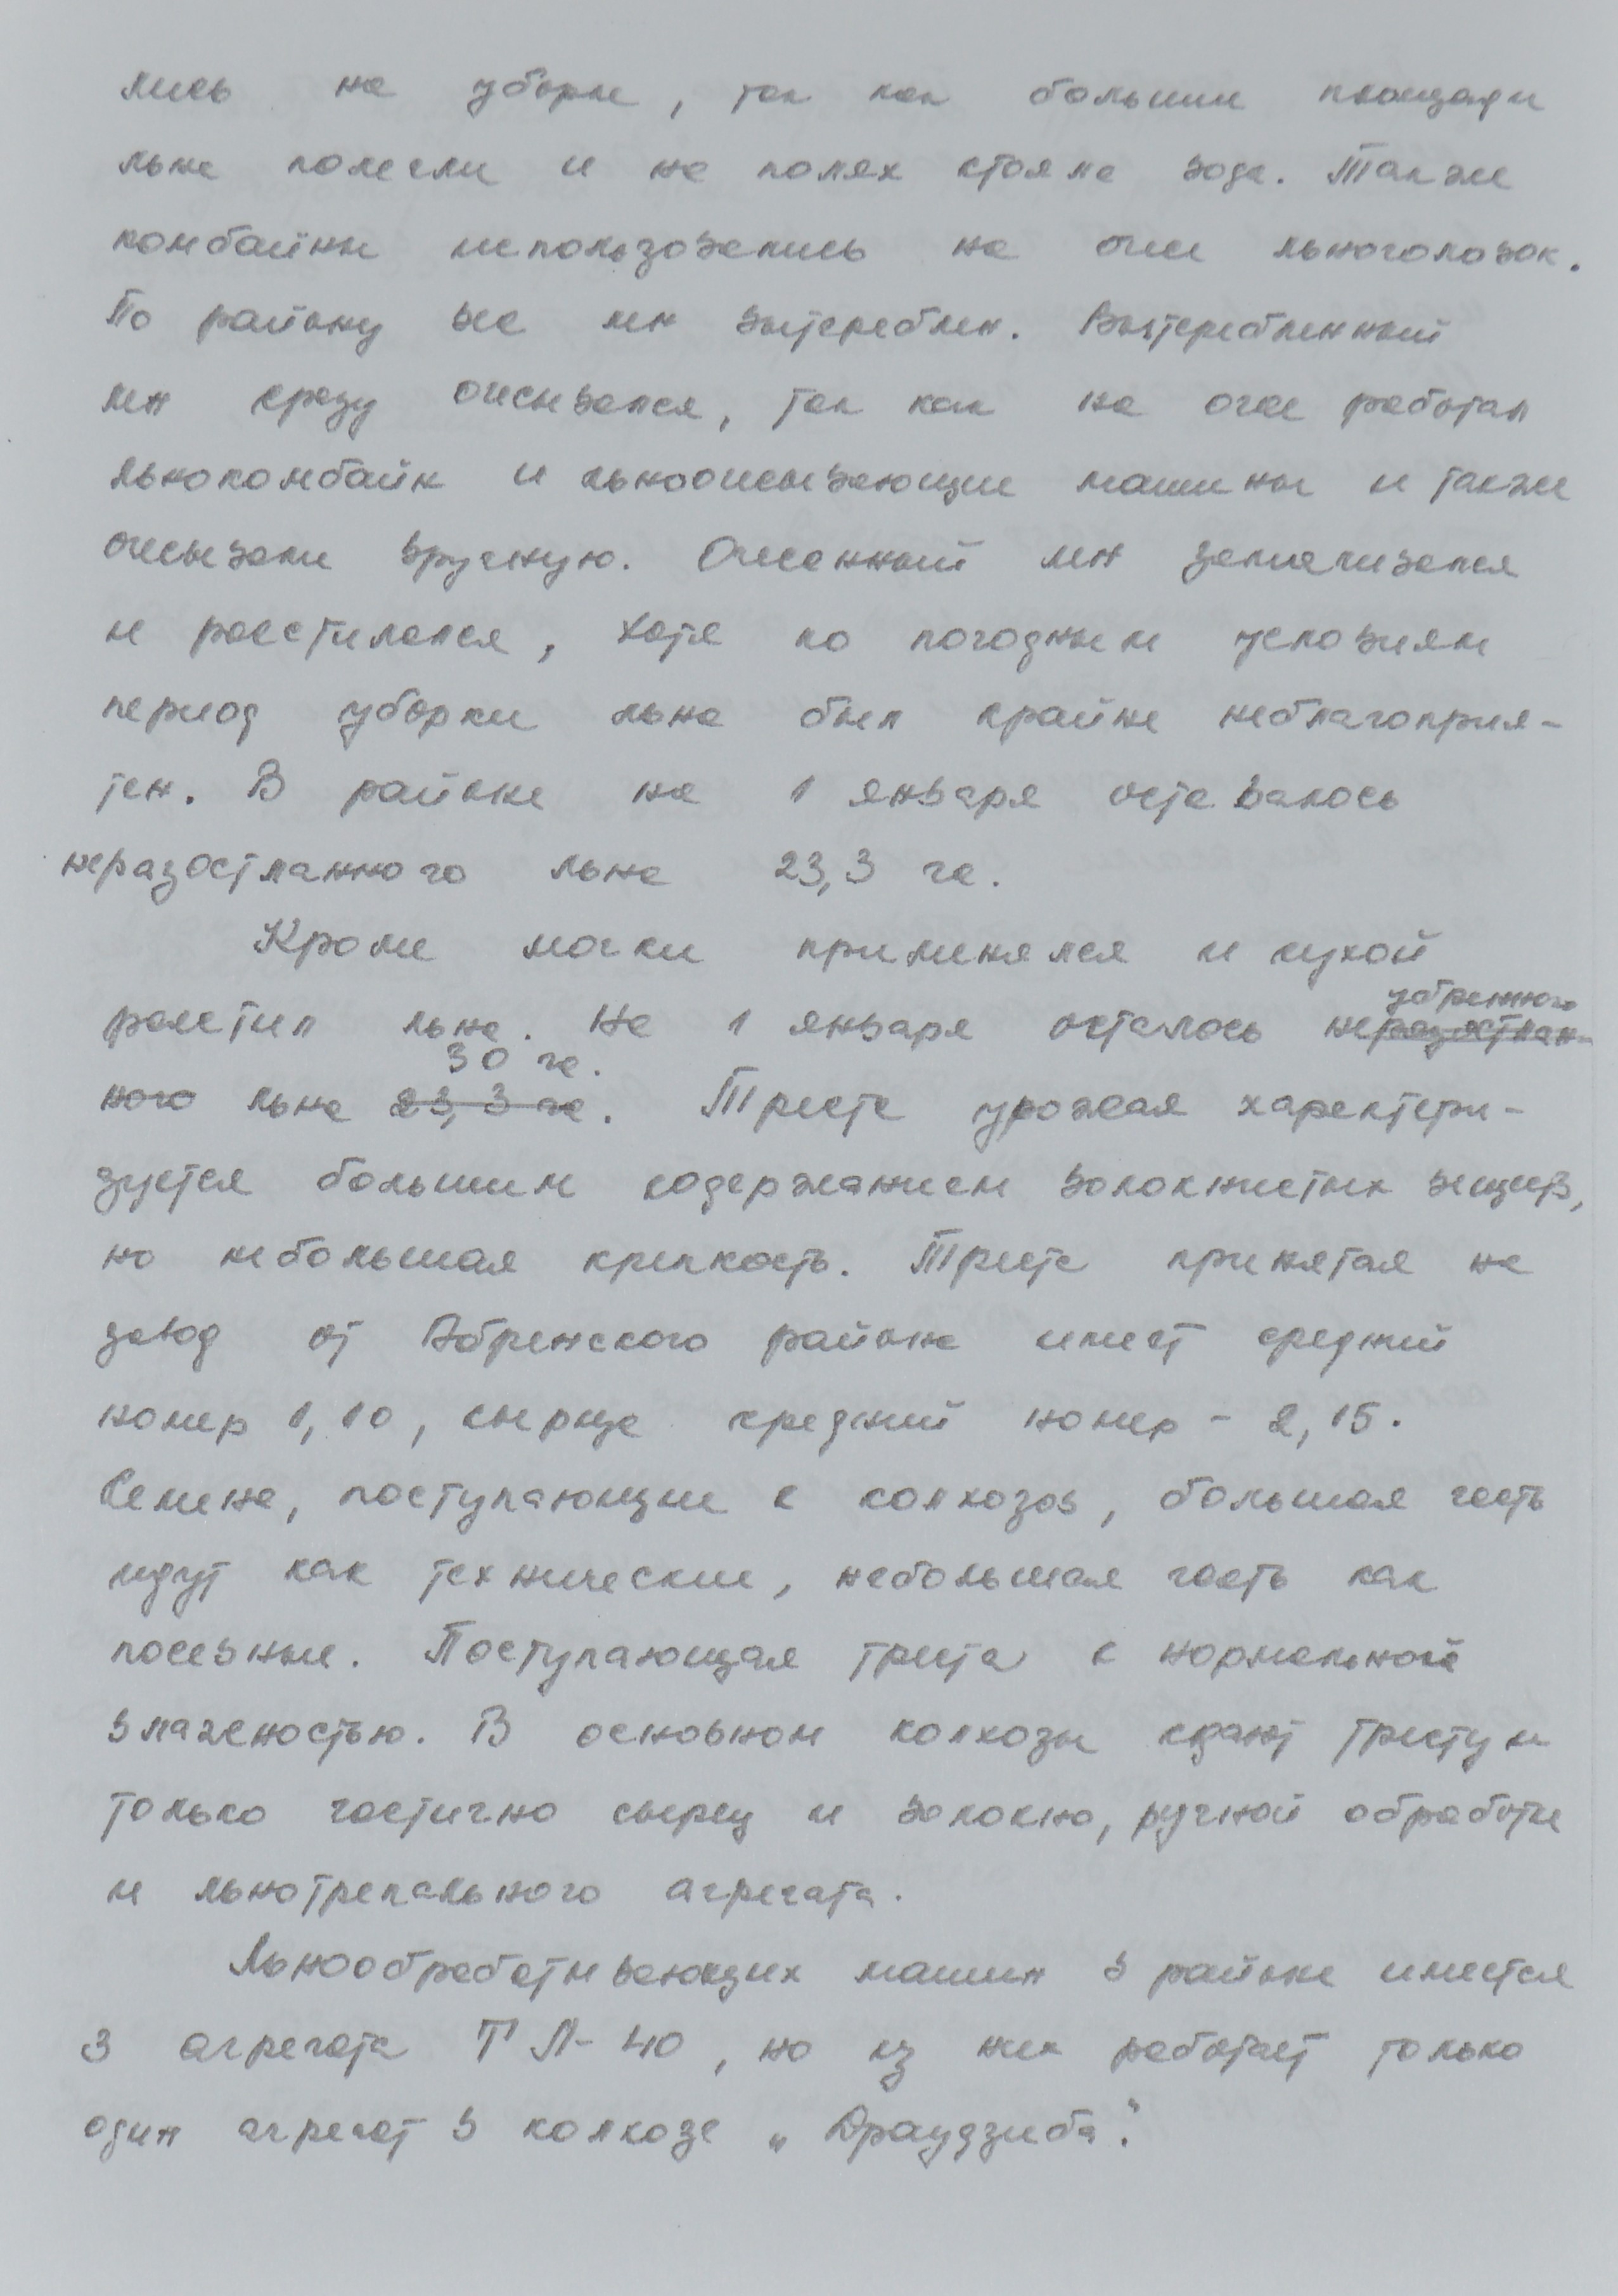 лись на уборке, так как большие площади
льна полегли и на полях стояла вода. Также
комбайны использовались на очес льноголовок.
По району весь лен вытереблен. Вытеребленный
лен сразу очесывался, так как на очес работал
льнокомбайн и льноочесывающие машины и также
очесывали вручную. Очесанный лен замачивался
и расстилался, хотя по погодным условиям
период уборки льна был крайне неблагоприя-
тен. В районе на 1 января оставалось
неразостланного льна 23,3 га.
Кроме мочки применялся и сухой
расстил льна. На 1 января осталось неразостлан-
убранного
ного льна 23,3 га. Треста урожая характери-
30 га.
зуется большим содержанием волокнистых веществ,
но небольшая крепкость. Треста принятая на
завод от Абренского района имеет средний
номер 1,10, сырца средний номер - 2,15.
Семена, поступающие с колхозов, большая часть
идут как технические, небольшая часть как
посевные. Поступающая треста с нормальной
влажностью. В основном колхозы сдают тресту и
только частично сырец и волокно, ручной обработки
и льнотрепального агрегата.
Льнообрабатывающих машин в районе имеется
3 агрегата ТЛ-40, но из них работает только
один агрегат в колхозе „Драудзиба".